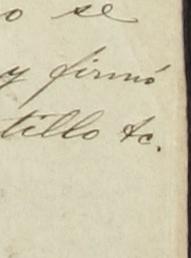 o se
y firmó
tillo &c.